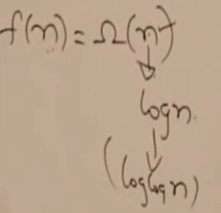 f(n) = Ω(n)
↓
log n
↓
(log log n)